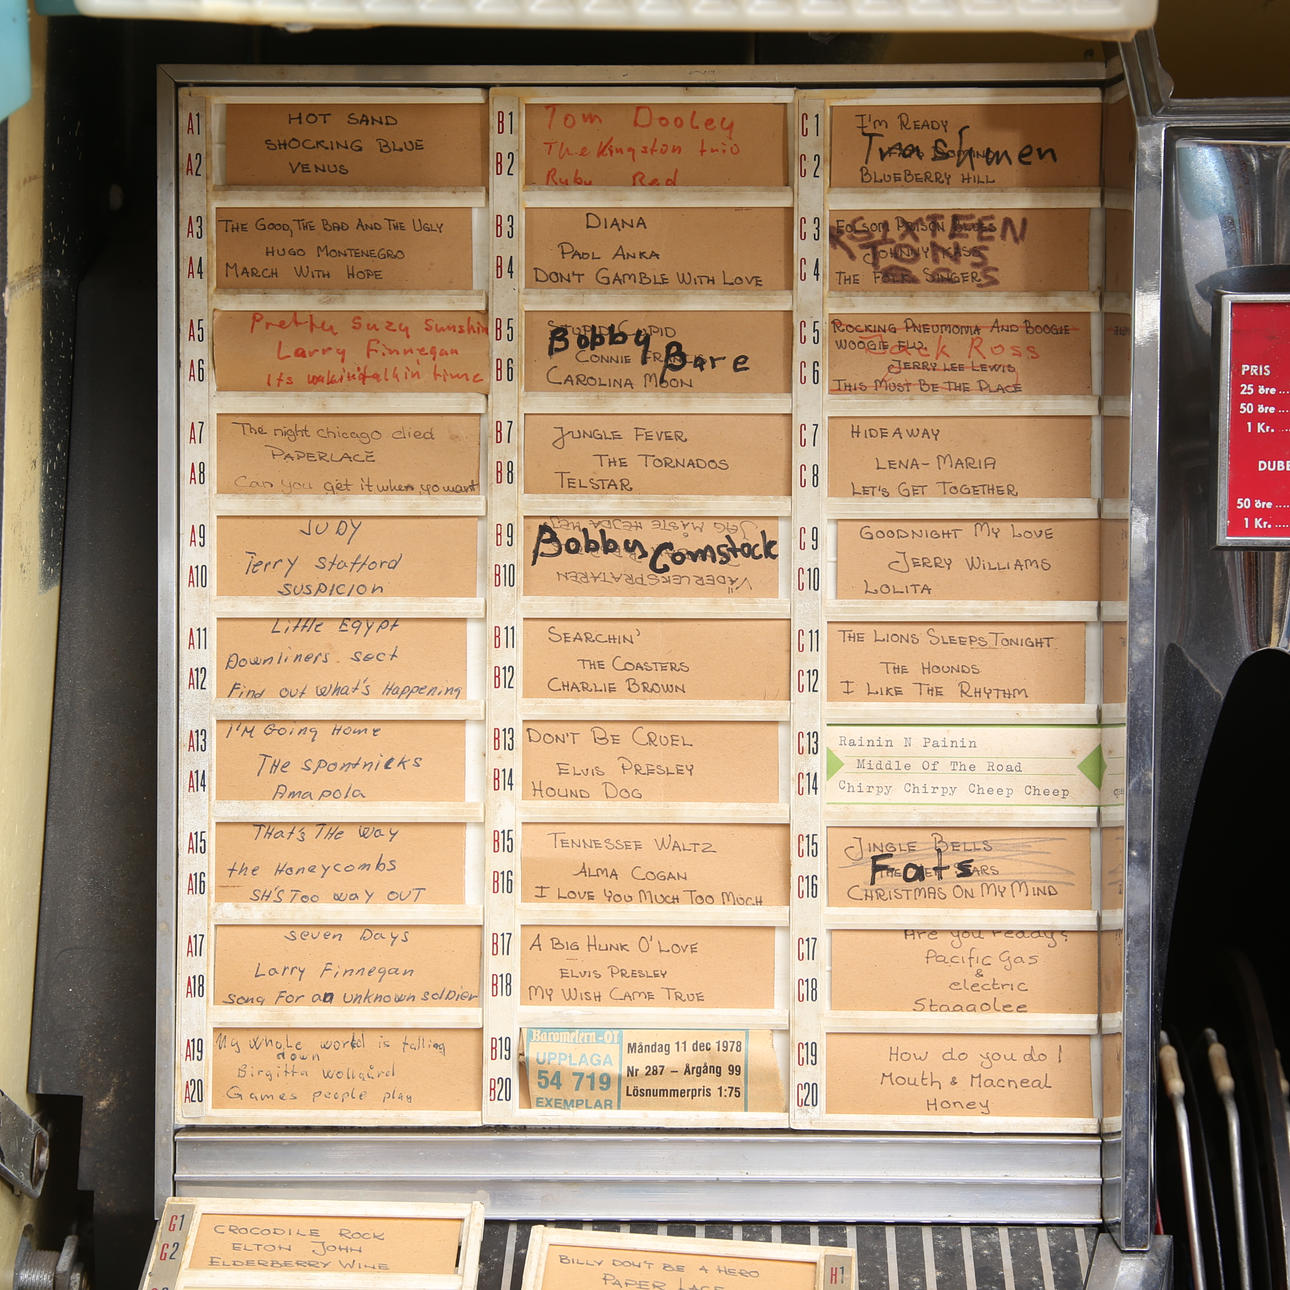 A1
A2
HOT SAND
SHOCKING BLUE
VENUS
A3
A4
THE GOOD, THE BAD AND THE UGLY
HUGO MONTENEGRO
MARCH WITH HOPE
A5
A6
Pretty Suzy Sunshin
Larry Finnegan
its walkin talkin time
A7
A8
The night chicago died
PAPERLACE
Can you get it when you want
A9
A10
JUDY
Terry Stafford
SUSPICION
A11
A12
Little Egypt
Downliners sect
Find out what's Happening
A13
A14
I'M Going Home
THe spontnicks
Amapola
A15
A16
THat's THe way
the Honeycombs
SH'S Too way OUT
A17
A18
seven Days
Larry Finnegan
song For an unknown soldier
A19
A20
My whole world is falling
down
Birgitta Wollgård
Games people play
B1
B2
Tom Dooley
The Kingston trio
Ruby Red
B3
B4
DIANA
PAUL ANKA
DON'T GAMBLE WITH LOVE
B5
B6
STUPID CUPID
Bobby Bare
CONNIE FRANCIS
CAROLINA MOON
B7
B8
JUNGLE FEVER
THE TORNADOS
TELSTAR
B9
B10
JAG MÅSTE HEJDA MEJ
Bobby Comstock
VÄDERLEKSPRATAREN
B11
B12
SEARCHIN'
THE COASTERS
CHARLIE BROWN
B13
B14
DON'T BE CRUEL
ELVIS PRESLEY
HOUND DOG
B15
B16
TENNESSEE WALTZ
ALMA COGAN
I LOVE YOU MUCH TOO MUCH
B17
B18
A BIG HUNK O'LOVE
ELVIS PRESLEY
MY WISH CAME TRUE
B19
B20
Barometern-OT
UPPLAGA
54 719
EXEMPLAR
Måndag 11 dec 1978
Nr 287 – Årgång 99
Lösnummerpris 1:75
C1
C2
I'M READY
Trashmen
BLUEBERRY HILL
C3
C4
FOLSOM PRISON BLUES
SIXTEEN
TONS
THE FOLK SINGER
C5
C6
ROCKING PNEUMONIA AND BOOGIE
WOOGIE FLU
Jack Ross
JERRY LEE LEWIS
THIS MUST BE THE PLACE
C7
C8
HIDEAWAY
LENA-MARIA
LET'S GET TOGETHER
C9
C10
GOODNIGHT MY LOVE
JERRY WILLIAMS
LOLITA
C11
C12
THE LIONS SLEEPS TONIGHT
THE HOUNDS
I LIKE THE RHYTHM
C13
C14
Rainin N Painin
Middle Of The Road
Chirpy Chirpy Cheep Cheep
C15
C16
JINGLE BELLS
Fats
CHRISTMAS ON MY MIND
C17
C18
Are you ready?
Pacific Gas
&
electric
Staggolee
C19
C20
How do you do!
Mouth & Macneal
Honey
PRIS
25 öre
50 öre
1 Kr.
DUBE
50 öre
1 Kr.
G1
G2
CROCODILE ROCK
ELTON JOHN
ELDERBERRY WINE
BILLY DON'T BE A HERO
PAPER LACE
H1